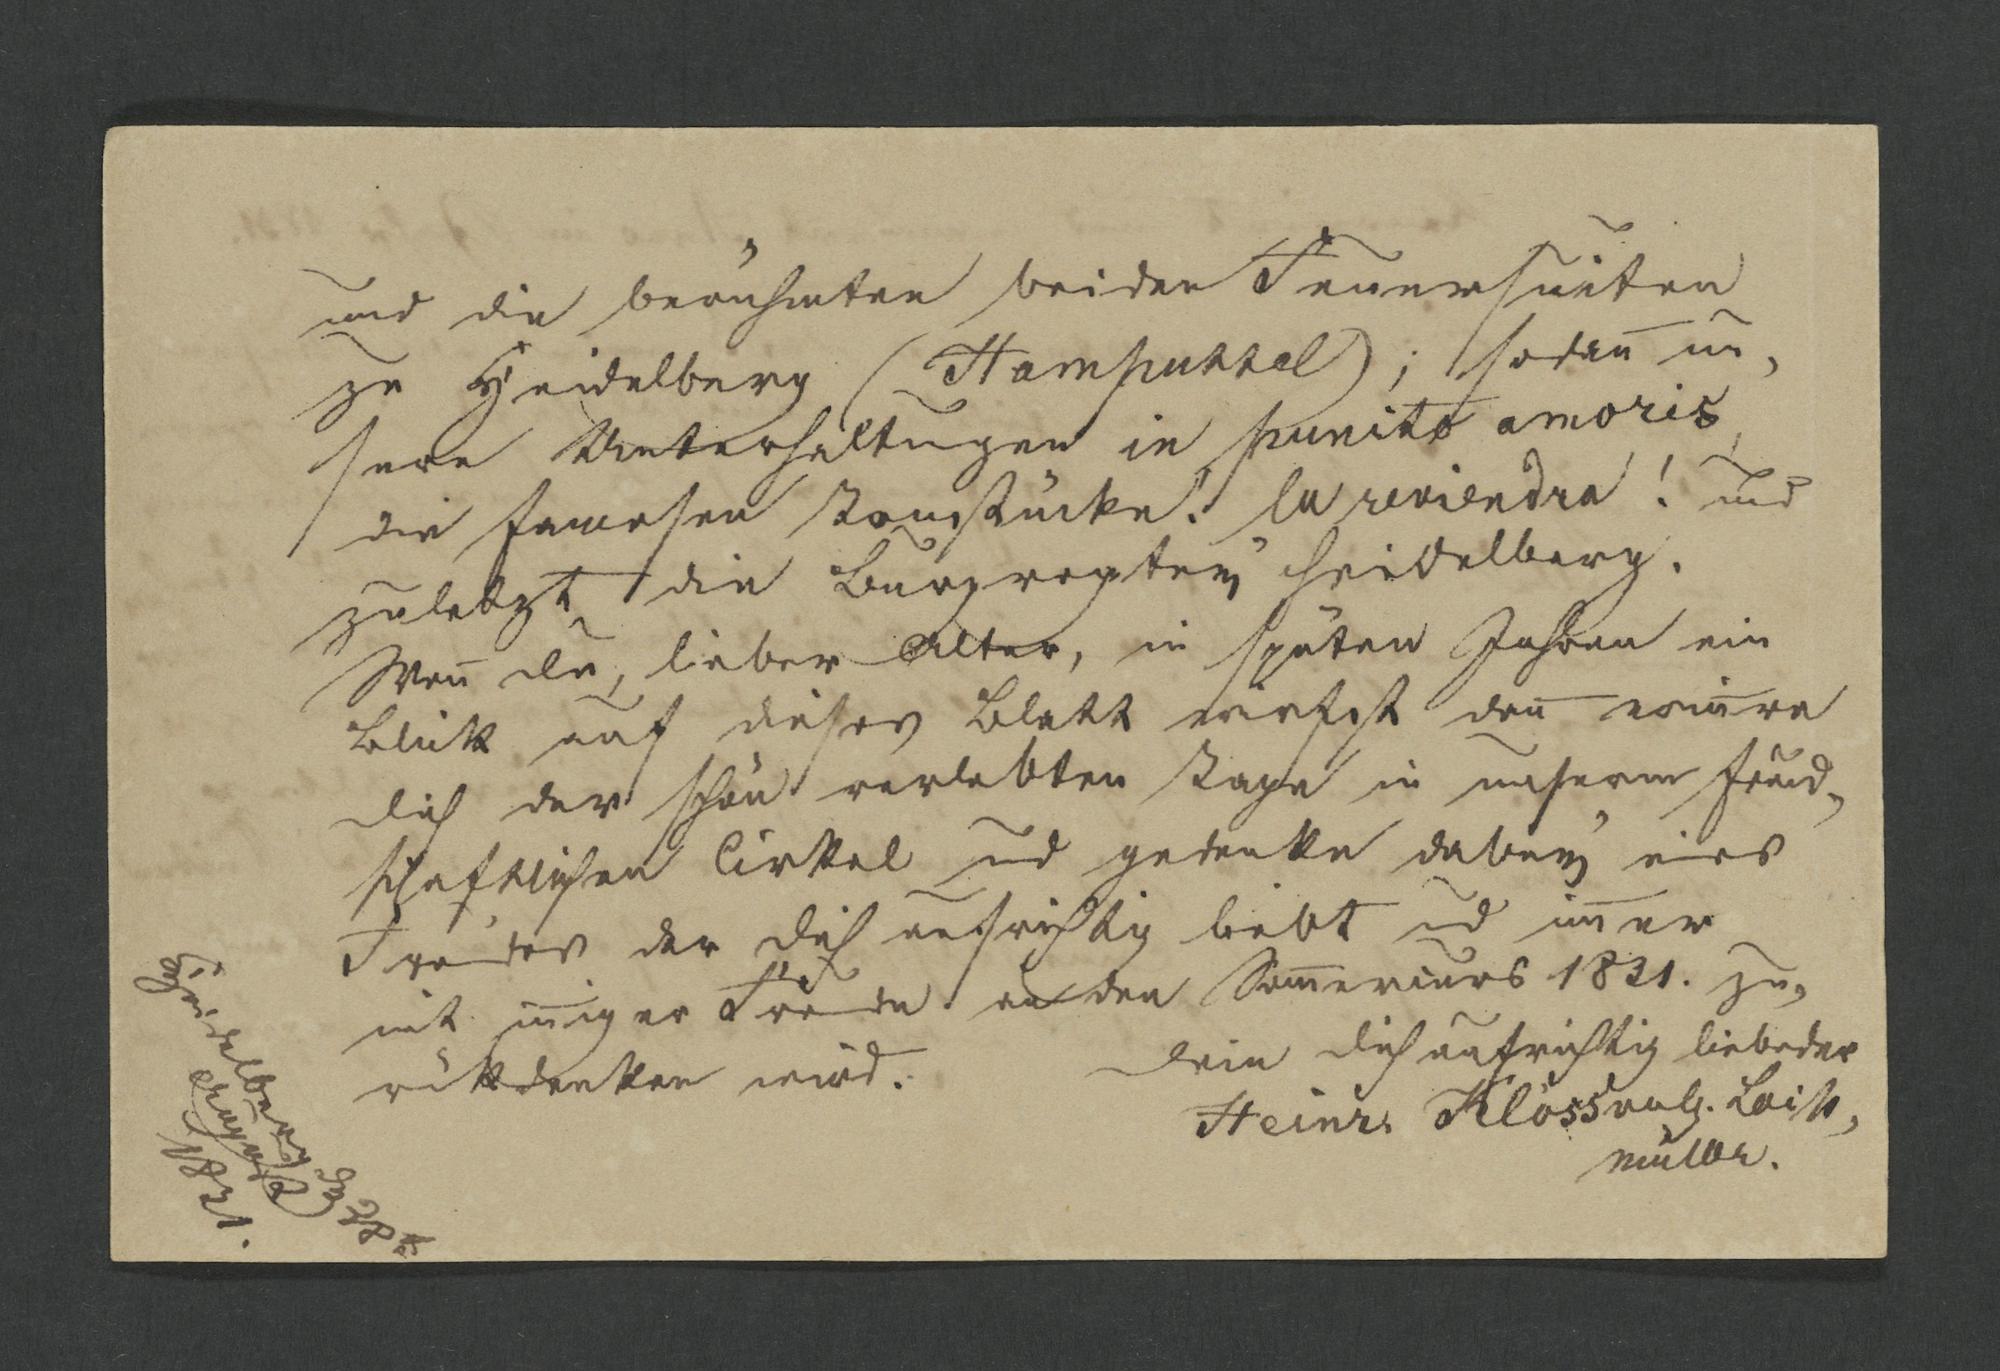 und die berühmten beiden Feuersuiten
zu Heidelberg (Hamputtel); sodañ un-
sere Unterhaltungen in puncto amoris,
die famosen Tonstücke: la reviendra! und
zuletzt die Burgregteÿ Heidelberg.
Weñ du, lieber Alter, in späten Jahren ein
Blick auf dieses Blatt wirfst dañ eriñre
dich der schön verlebten Tage in unserm freund-
schaftlichen Cirkel und gedenke dabeÿ eines
Freundes der dich aufrichtig liebt und im̄er
mit iñiger Freude an den Som̄ercurs 1821. zu-
rükdenken wird.
Dein dich aufrichtig liebender
Heinr.
müller.
Heidelberg d 28t
August
1821.